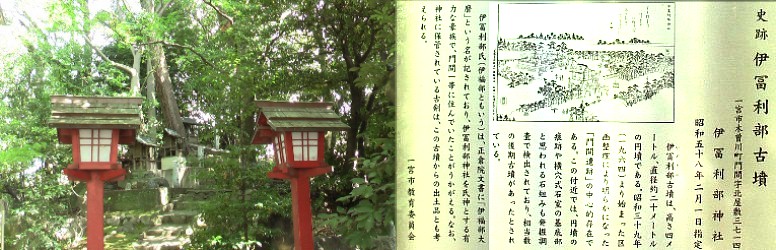 史跡 伊冨利部古墳
一宮市木曽川町門間字北屋敷三七一四
伊冨利部神社
昭和五十八年二月一日指定
伊冨利部古墳は、高さ四メ
ートル、直径約二十メートル
の円墳である。昭和三十九年
(一九六四)より始まった区
画整理により明らかになった
「門間遺跡」の中心的存在で
ある。この付近では、円墳の
痕跡や横穴式石室の基底部
と思われる石組みも発掘調
査で検出されており、相当数
の後期古墳があったとされ
ている。
伊冨利部氏(伊福部ともいう)は、正倉院文書に「伊福部大
麿」という名が記されており、伊冨利部神社を氏神とする有
力な豪族で、門間一帯に住んでいたことがうかがえる。なお、
神社に保管されている古剣は、この古墳からの出土品とも考
えられる。
一宮市教育委員会